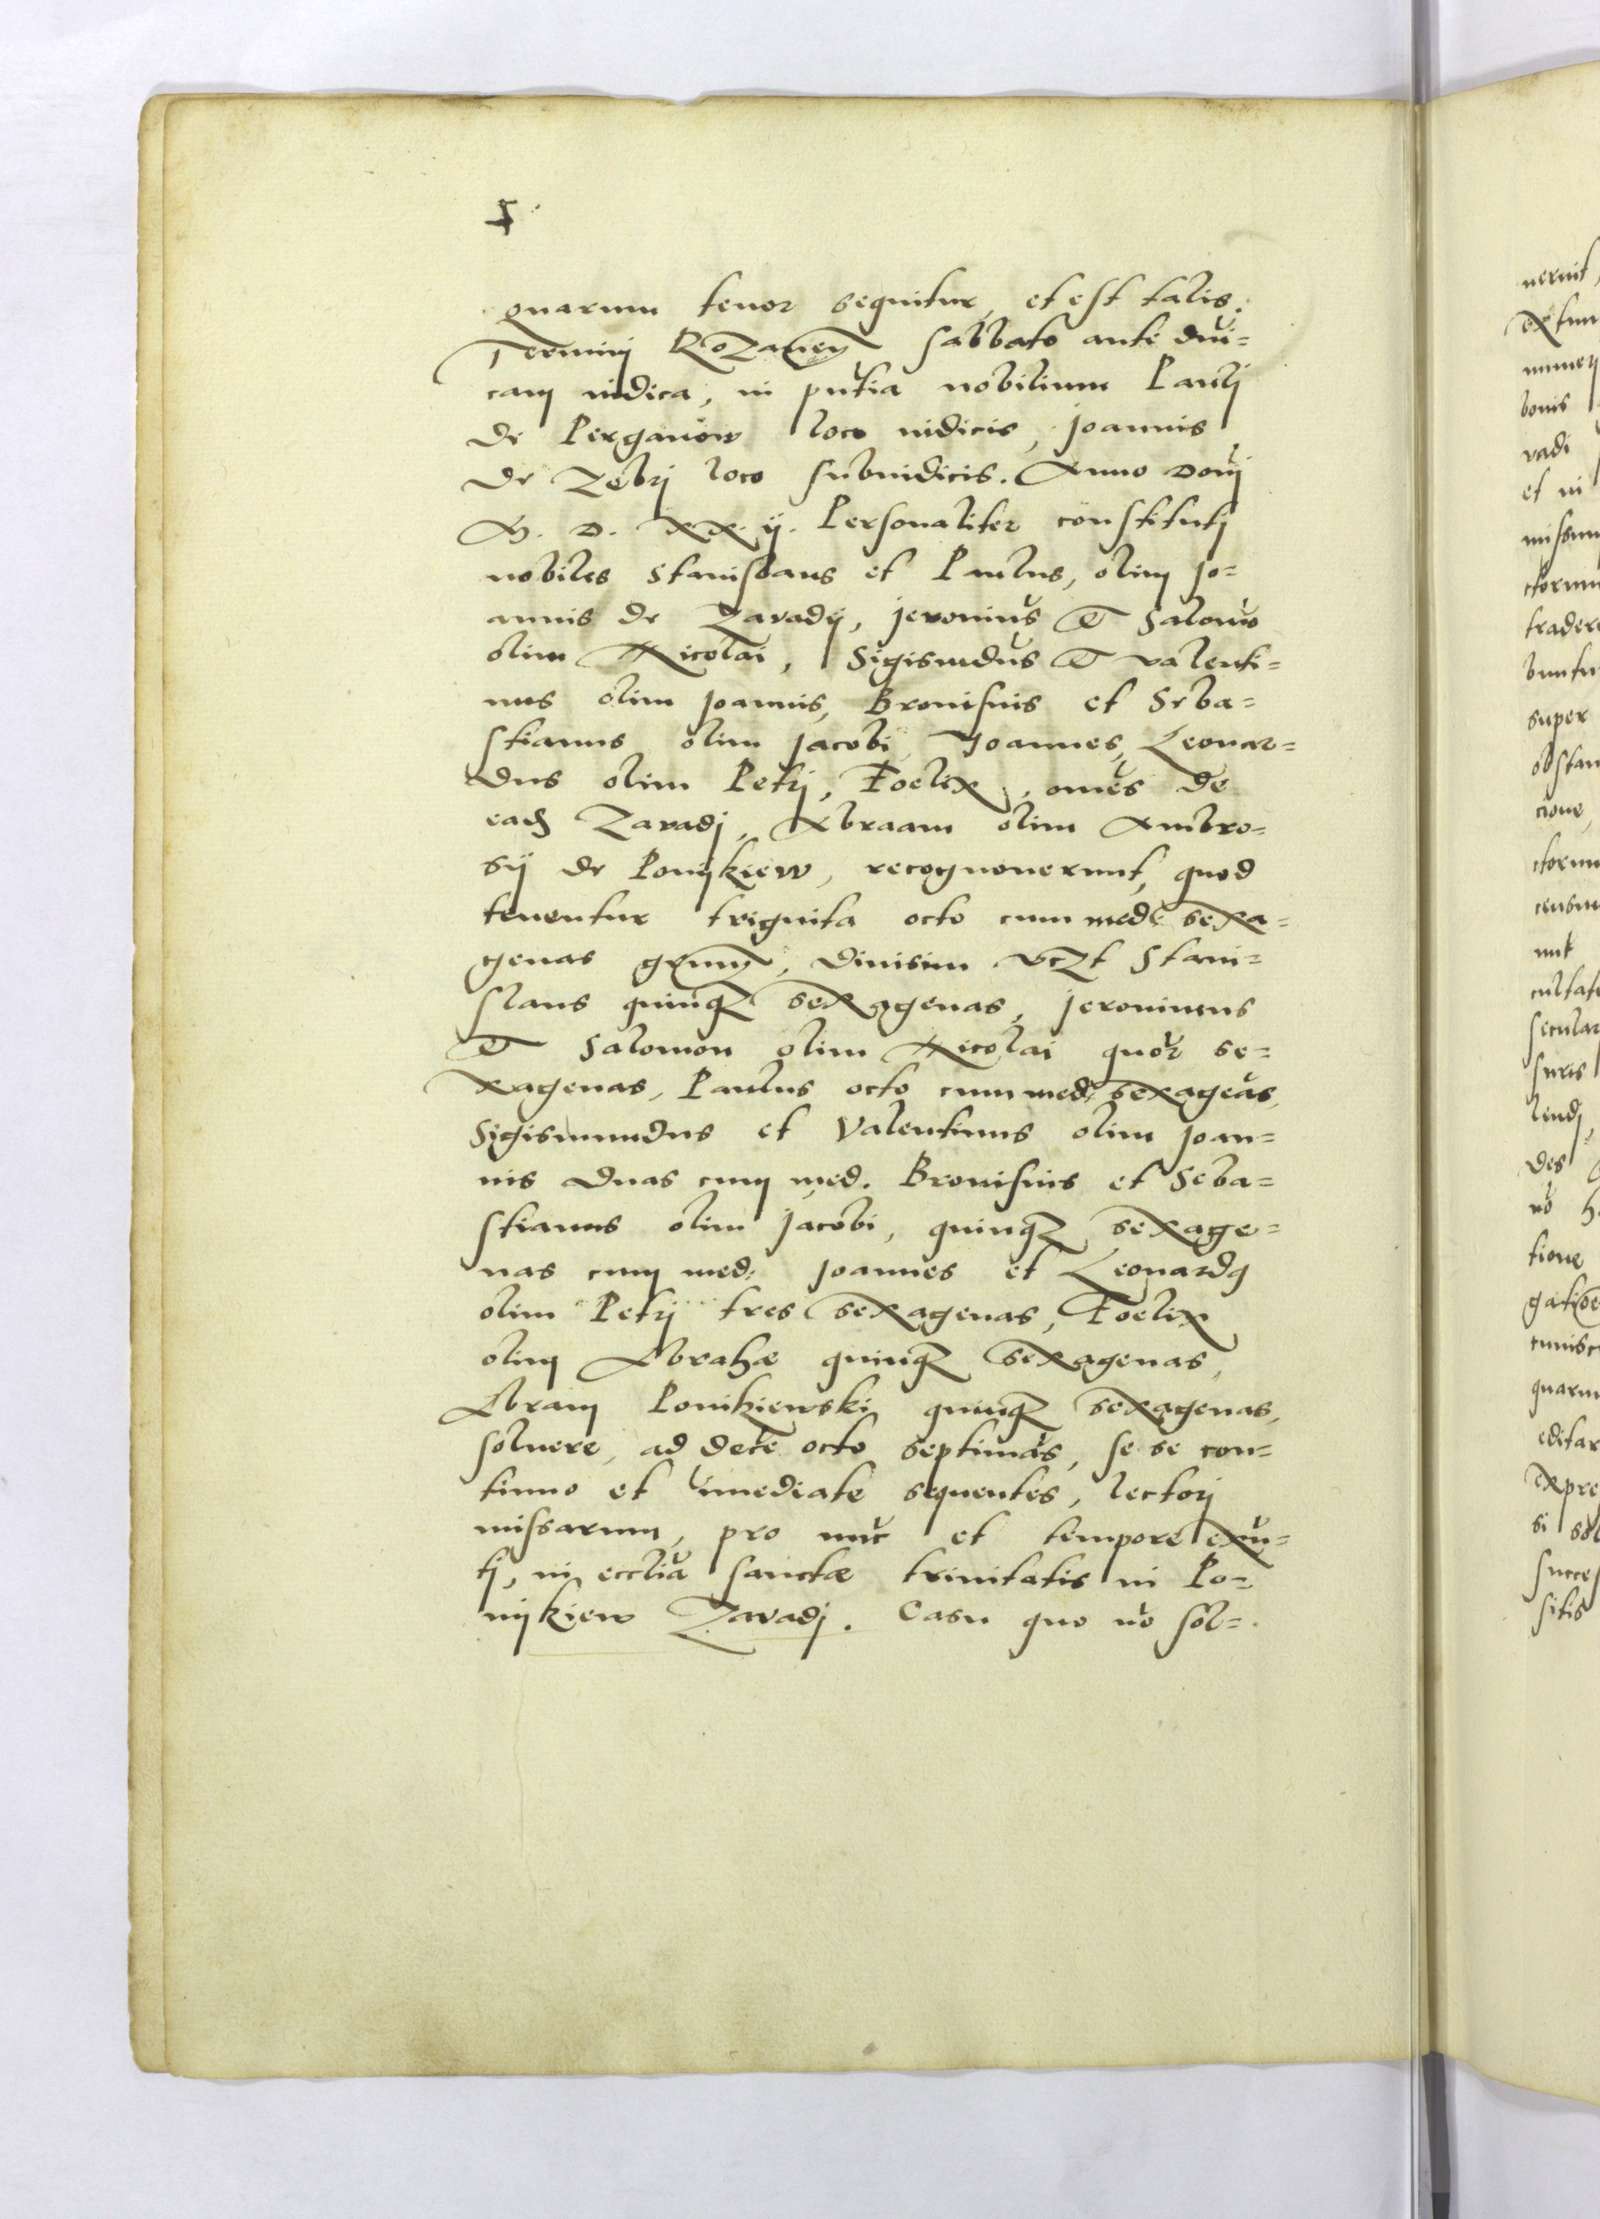 quarum tenor sequitur, et est talis.
Termini Rozaneñ Sabbato ante dni-
cam iudica, in pntia nobilium Pauli
de Perzanow loco iudicis, Joannis
de Zebrj loco subiudicis. Anno Domj
M. D. XX ij. Personaliter constitutj
nobiles Stanislaus et Paulus, olim Jo-
annis de Zavadij, Jeronimus et Salomo
olim Nicolai, Sigismdus et Valenti-
nus olim Joannis, Bronisius et Seba-
stianus olim Jacobi, Joannes, Leonar-
dus olim Petri, Foelix, omes de
ead Zavadj, Abraam olim Ambro-
sij de Ponijkiew, recognouerunt, quod
tenentur triginta octo cum med. sexa-
genas, diuisim vczt Stani-
slaus quinqz sexagenas, Jeronimus
et Salomon olim Nicolai quor se-
xagenas, Paulus octo cum med. sexageas,
Sigismundus et Valentinus olim Joan-
nis duas cum med. Bronisius et Seba-
stianus olim Jacobi, quinqz sexage-
nas cum med. Joannes et Leonardq
olim Petrj tres sexagenas, Foelix
olim Abrahæ quinqz sexagenas,
Abram Ponikiewski quinqz sexagenas,
soluere, ad dece octo septimas, se se con-
tinuo et imediate sequentes, lectorj
missarum, pro nuc et tempore exn-
tj, in ecclia sanctæ trinitatis in Po-
nijkiew Zavadj. Casu quo uo sol-
uerit,
numerj
bonis
vadi
et in
tradere
super
obstan
cione,
censu
secular
iuris
lendj,
des
tione
quarum
editar
expre
si sol
succes
sitis